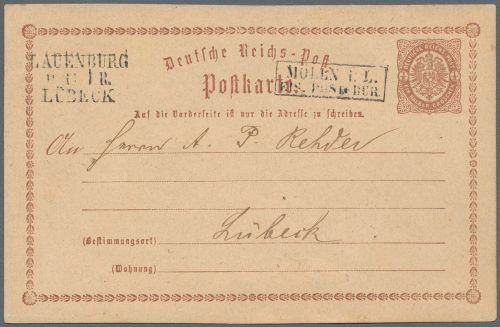 Deutsche Reichs-Post
Postkarte
LAUENBURG
LÜBECK
MÖLLN i. L.
EIS. POST. BUR.
Auf die Vorderseite ist nur die Adresse zu schreiben.
An Herrn A. P. Rehder
Lübeck
(Bestimmungsort)
(Wohnung)